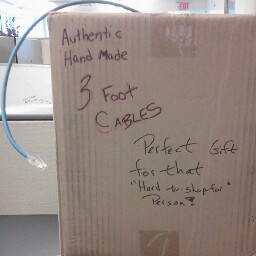 EXIT
Authentic
Hand Made
3 Foot
CABLES
Perfect Gift
for that
"Hard to shop for"
Person?